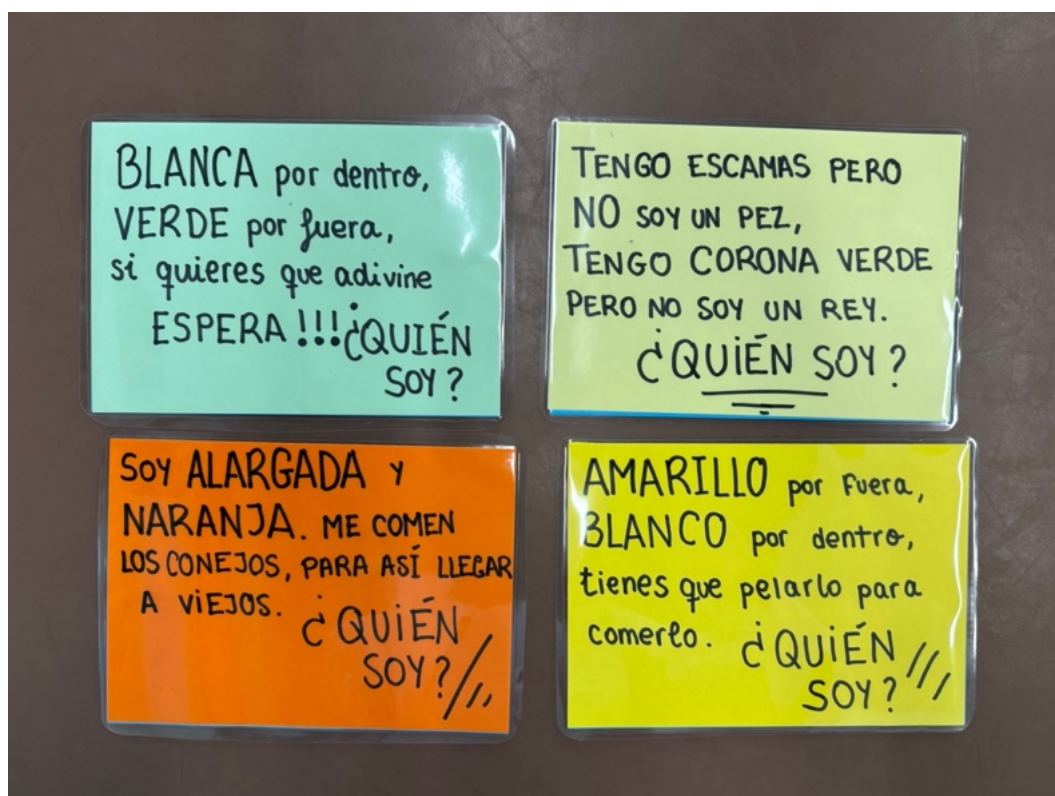 BLANCA por dentro,
VERDE por fuera,
si quieres que adivine
ESPERA!!! ¿QUIÉN
SOY?
TENGO ESCAMAS PERO
NO SOY UN PEZ,
TENGO CORONA VERDE
PERO NO SOY UN REY.
¿QUIÉN SOY?
SOY ALARGADA Y
NARANJA. ME COMEN
LOS CONEJOS, PARA ASÍ LLEGAR
A VIEJOS. ¿QUIÉN
SOY?
AMARILLO por fuera,
BLANCO por dentro,
tienes que pelarlo para
comerlo. ¿QUIÉN
SOY?